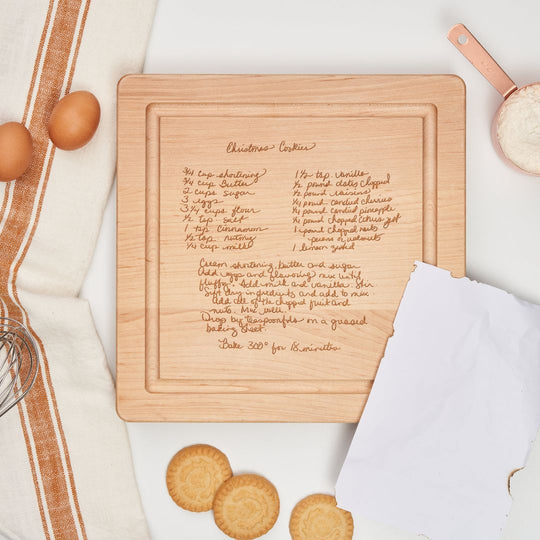 Christmas Cookies
3/4 cup shortening
3/4 cup butter
2 cups sugar
3 eggs
3 1/4 cups flour
1/2 tsp salt
1 tsp cinnamon
1/2 tsp nutmeg
1/4 cup milk
1 1/2 tsp vanilla
1/2 pound dates chopped
1/2 pound raisins
1/4 pound candied cherries
1/4 pound candied pineapple
1/4 pound chopped citrus
1 pound chopped nuts
pecans or walnuts
1 lemon
Cream shortening, butter and sugar
Add eggs and flavoring mix until
fluffy. Add milk and vanilla. Stir
dry ingredients and add to mix
Add all of the chopped fruit and
nuts. Mix well.
Drop by teaspoonfuls on a greased
baking sheet.
Bake 300° for 18 minutes